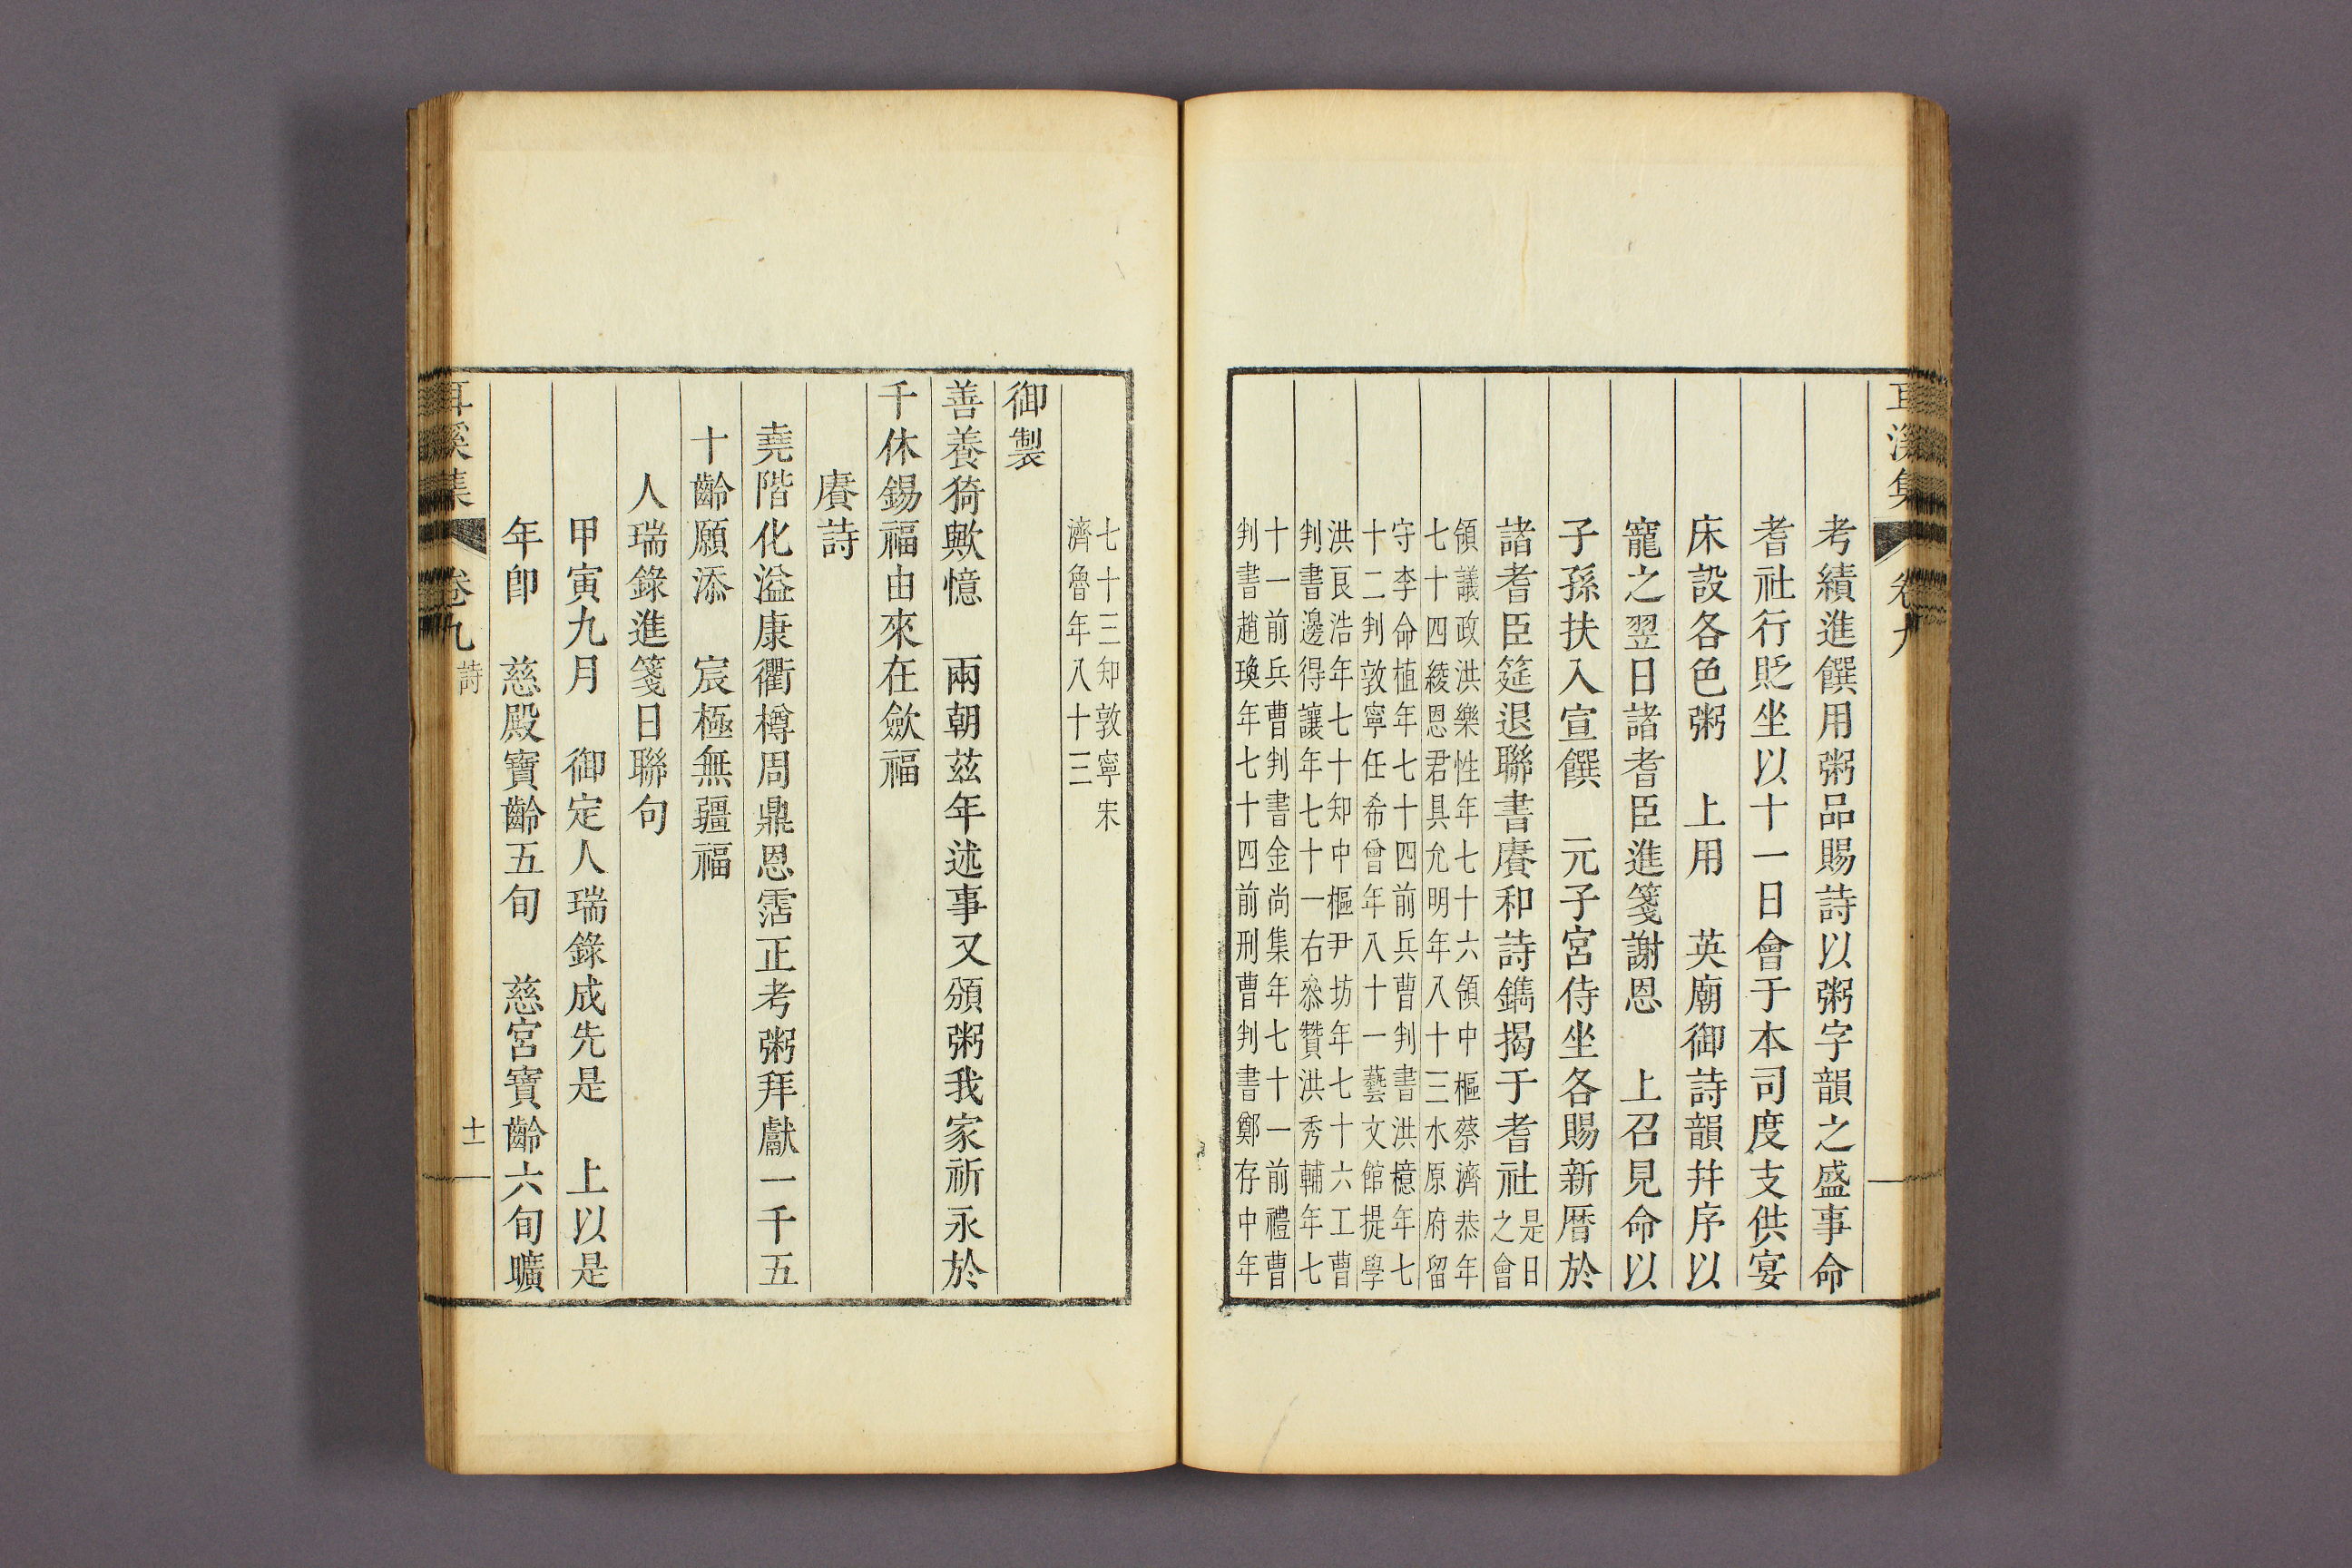 耳溪集 卷九
考績進饌用粥品賜詩以粥字韻之盛事命
耆社行貶坐以十一日會于本司度支供宴
床設各色粥 上用 英廟御詩韻幷序以
寵之翌日諸耆臣進箋謝恩 上召見命以
子孫扶入宣饌 元子宮侍坐各賜新曆於
諸耆臣筵退聯書賡和詩鐫揭于耆社是日之會
領議政洪樂性年七十六領中樞蔡濟恭年
七十四綾恩君具允明年八十三水原府留
守李命植年七十四前兵曹判書洪檍年七
十二判敦寧任希曾年八十一藝文館提學
洪良浩年七十知中樞尹坊年七十六工曹
判書邊得讓年七十一右叅贊洪秀輔年七
十一前兵曹判書金尙集年七十一前禮曹
判書趙㻐年七十四前刑曹判書鄭存中年
七十三知敦寧宋
濟魯年八十三
御製
善養猗歟憶 兩朝玆年述事又頒粥我家祈永於
千休錫福由來在歛福
賡詩
堯階化溢康衢樽周鼎恩霑正考粥拜獻一千五
十齡願添 宸極無疆福
人瑞錄進箋日聯句
甲寅九月 御定人瑞錄成先是 上以是
年卽 慈殿寶齡五旬 慈宮寶齡六旬曠
耳溪集 卷九 詩 十一